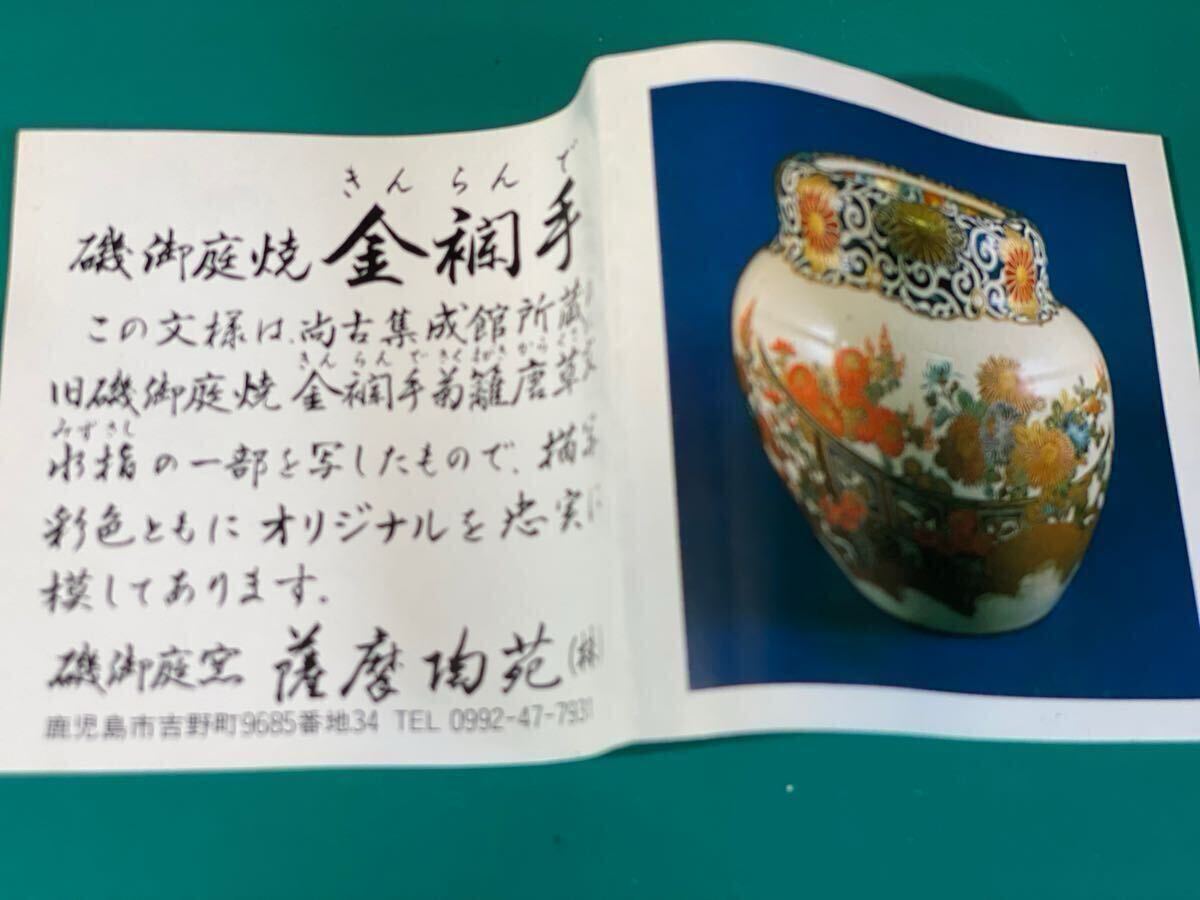 きんらんで
磯御庭焼 金襴手
この文様は、尚古集成館所蔵
きんらんできくまがきからくさ
旧磯御庭焼 金襴手菊籬唐草
みずさし
水指の一部を写したもので、描
彩色ともにオリジナルを忠実に
模してあります。
磯御庭窯 薩摩陶苑(株)
鹿児島市吉野町9685番地34 TEL 0992-47-7931